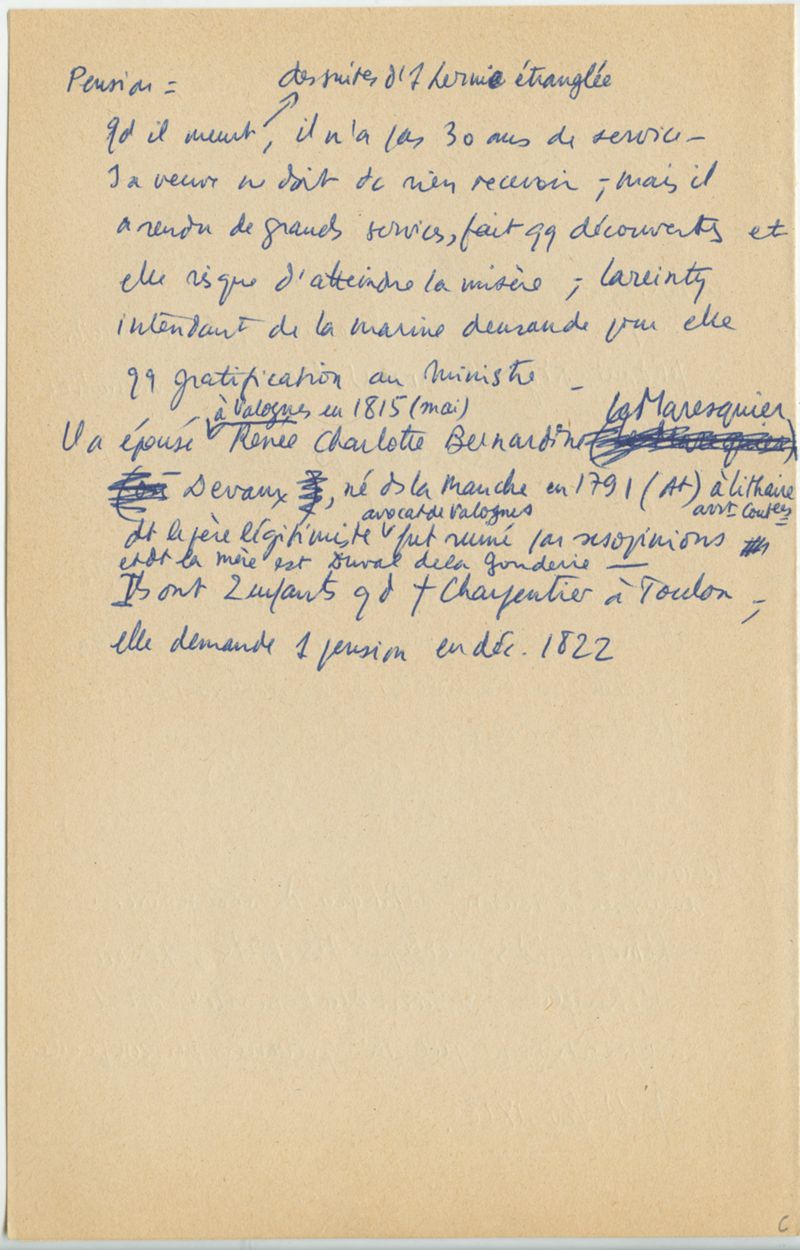 Pension =
des suites d'1 hernie étranglée
qd il meurt, il n'a pas 30 ans de service -
sa veuve ne doit dc rien recevoir ; mais il
a rendu de grands services, fait qq découvertes et
elle risque d'atteindre la misère ; Lareinty
intendant de la marine demande pour elle
qq gratification au Ministre -
à Valognes en 1815 (mai)
le Maresquier
Il a épousé Renée Charlotte Bernardine
Devaux, né ds la Manche en 1791 (At) à Lithaire
avocat de Valognes
dt le père légitimiste fut ruiné par ses opinions
et dt la mère est Duval de la Gonderie —
Ils ont 2 enfants qd † Charpentier à Toulon ;
elle demande 1 pension en déc. 1822
C